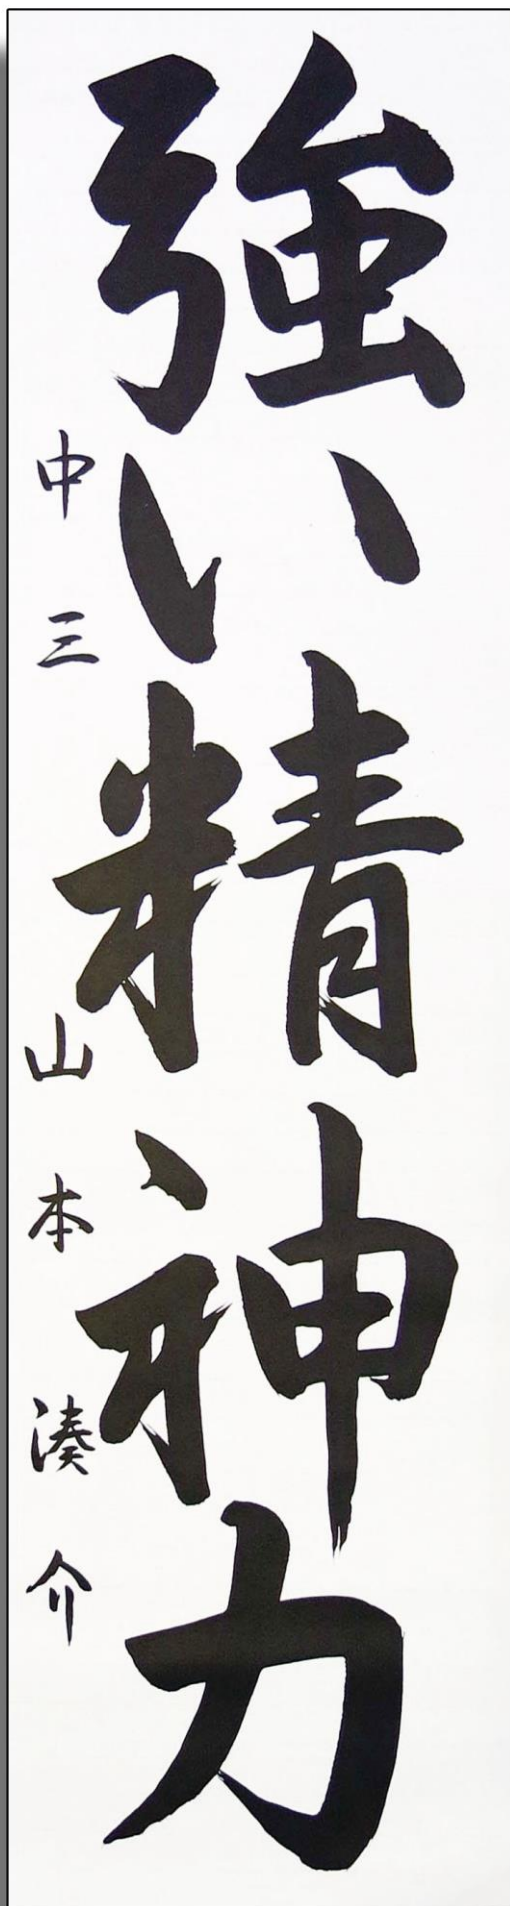 強い精神力
中三 山本湊介